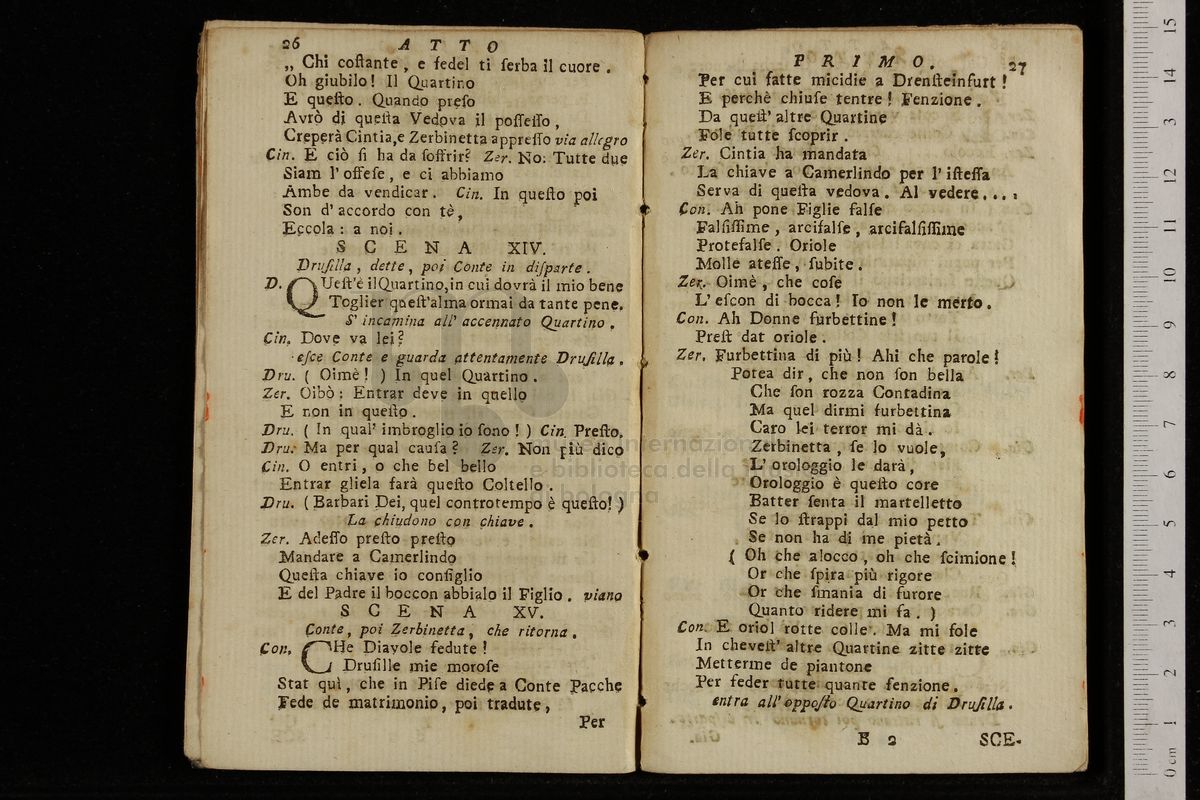 26 A T T O
„ Chi coſtante , e fedel ti ſerba il cuore .
Oh giubilo! Il Quartino
E queſto . Quando preſo
Avrò di queſta Vedova il poſſeſſo ,
Creperà Cintia,e Zerbinetta appreſſo via allegro
Cin. E ciò ſi ha da ſoffrir? Zer. No: Tutte due
Siam l' offeſe , e ci abbiamo
Ambe da vendicar . Cin. In queſto poi
Son d' accordo con tè ,
Eccola : a noi .
S C E N A XIV.
Druſilla , dette , poi Conte in diſparte .
D. QUeſt'è ilQuartino,in cui dovrà il mio bene
Toglier queſt'alma ormai da tante pene.
S' incamina all' accennato Quartino .
Cin. Dove va lei?
eſce Conte e guarda attentamente Druſilla .
Dru. ( Oimè! ) In quel Quartino .
Zer. Oibò: Entrar deve in quello
E non in queſto .
Dru. ( In qual' imbroglio io ſono ! ) Cin. Preſto.
Dru. Ma per qual cauſa ? Zer. Non più dico
Cin. O entri , o che bel bello
Entrar gliela farà queſto Coltello .
Dru. ( Barbari Dei, quel controtempo è queſto! )
La chiudono con chiave .
Zer. Adeſſo preſto preſto
Mandare a Camerlindo
Queſta chiave io conſiglio
E del Padre il boccon abbialo il Figlio . viano
S C E N A XV.
Conte , poi Zerbinetta , che ritorna .
Con. CHe Diavole fedute !
Druſille mie moroſe
Stat quì , che in Piſe diede a Conte Pacche
Fede de matrimonio, poi tradute ,
Per
P R I M O. 27
Per cui fatte micidie a Drenſteinfurt !
E perchè chiuſe tentre ! Fenzione .
Da queſt' altre Quartine
Fole tutte ſcoprir .
Zer. Cintia ha mandata
La chiave a Camerlindo per l' iſteſſa
Serva di queſta vedova . Al vedere . . . .
Con. Ah pone Figlie falſe
Falſiſſime , arcifalſe , arcifalſiſſime
Protefalſe . Oriole
Molle ateſſe , ſubite .
Zer. Oimè , che coſe
L' eſcon di bocca! Io non le merto .
Con. Ah Donne furbettine !
Preſt dat oriole .
Zer. Furbettina di più ! Ahi che parole!
Potea dir , che non ſon bella
Che ſon rozza Contadina
Ma quel dirmi furbettina
Caro lei terror mi dà .
Zerbinetta , ſe lo vuole,
L' orologgio le darà ,
Orologgio è queſto core
Batter ſenta il martelletto
Se lo ſtrappi dal mio petto
Se non ha di me pietà .
( Oh che alocco , oh che ſcimione !
Or che ſpira più rigore
Or che ſmania di furore
Quanto ridere mi fa . )
Con. E oriol rotte colle . Ma mi fole
In cheveſt' altre Quartine zitte zitte
Metterme de piantone
Per feder tutte quante fenzione .
entra all' oppoſto Quartino di Druſilla .
B 2 SCE-